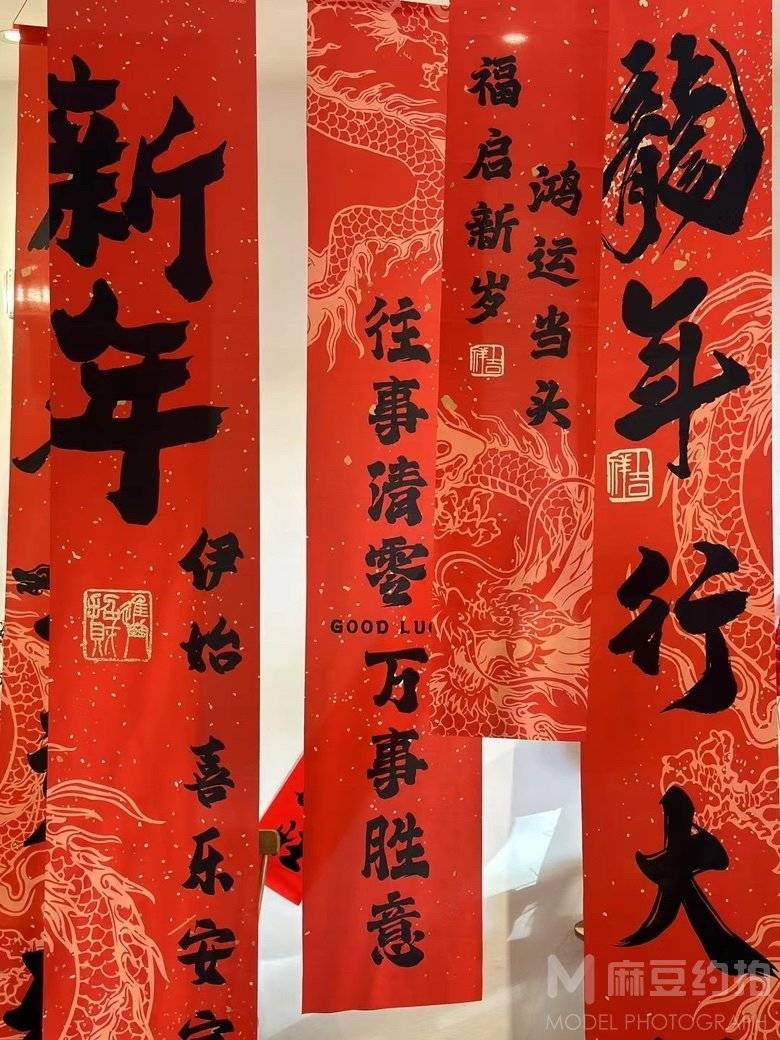 新年
伊始 喜乐安
往事清零 万事胜意
GOOD LU
福启新岁
鸿运当头
吉祥
龍年行大
吉祥
招財
M 麻豆约拍
MODEL PHOTOGRAP